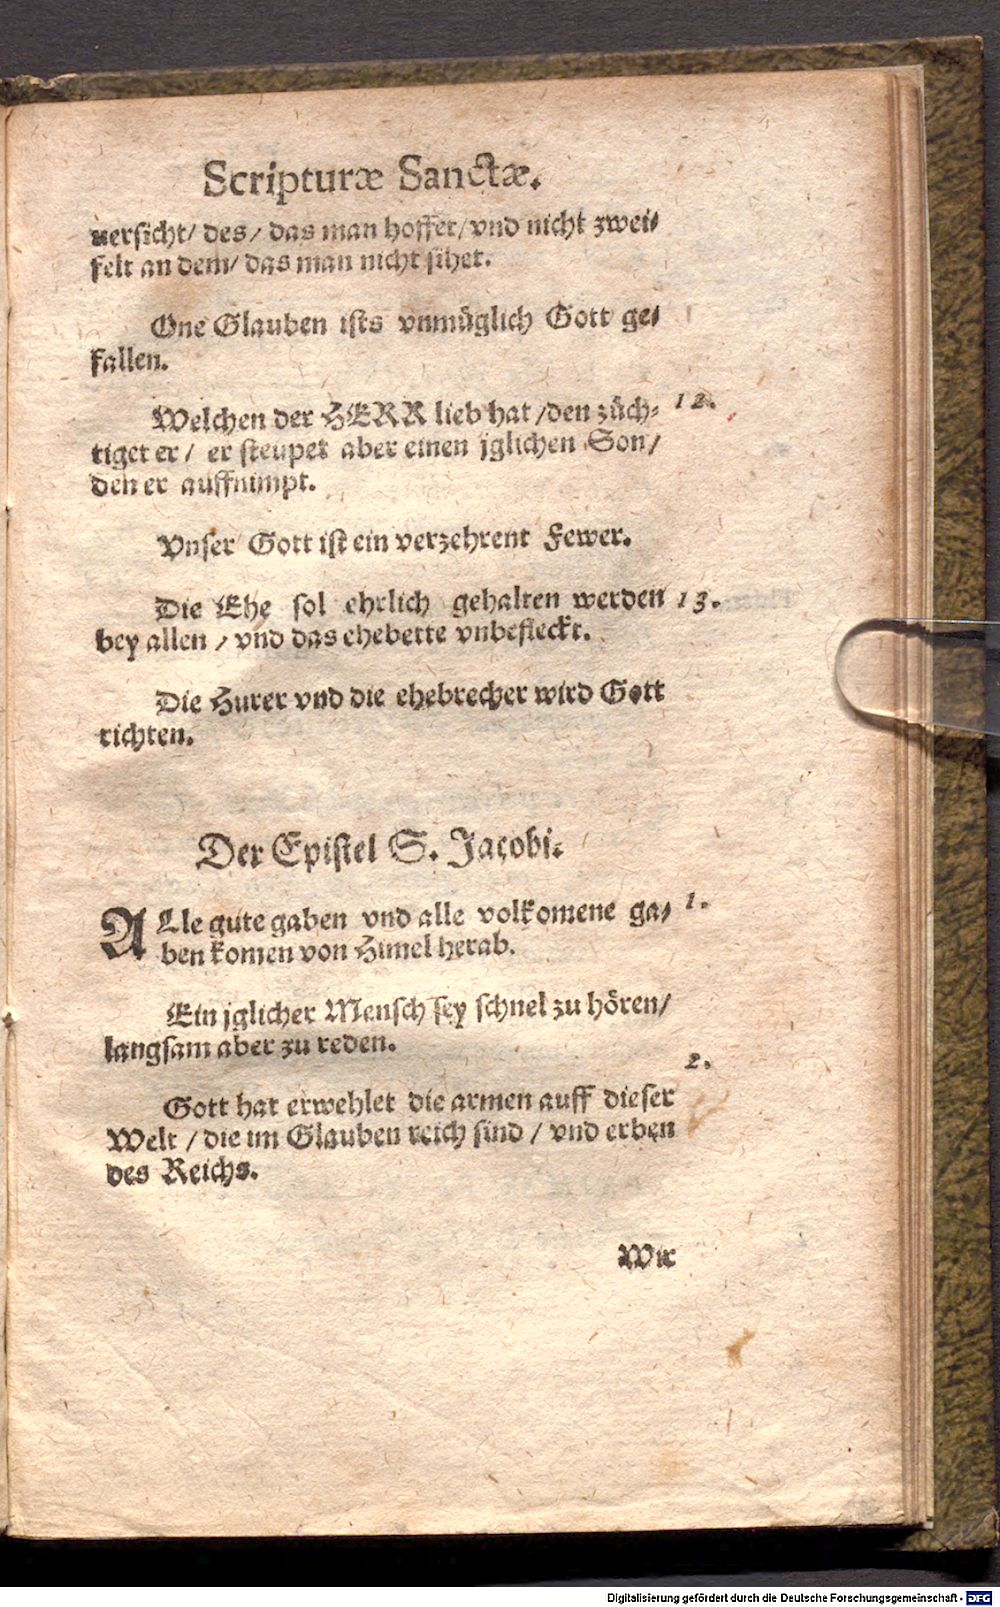 Scripturæ Sanctæ.
uersicht/ des/ das man hoffet/ vnd nicht zwei⸗
felt an dem/ das man nicht sihet.
One Glauben ists vnmüglich Gott ge⸗
fallen.
Welchen der HERR lieb hat /den züch⸗ 12.
tiget er/ er steupet aber einen jglichen Son/
den er auffnimpt.
Vnser Gott ist ein verzehrent Fewer.
Die Ehe sol ehrlich gehalten werden 13.
bey allen / vnd das ehebette vnbefleckt.
Die Hurer vnd die ehebrecher wird Gott
richten.
Der Epistel S. Jacobi.
ALle gute gaben vnd alle volkomene ga⸗ 1.
ben komen von Himel herab.
Ein jglicher Mensch sey schnel zu hören/
langsam aber zu reden.
2.
Gott hat erwehlet die armen auff dieser
Welt / die im Glauben reich sind / vnd erben
des Reichs.
Wir
Digitalisierung gefördert durch die Deutsche Forschungsgemeinschaft - DFG